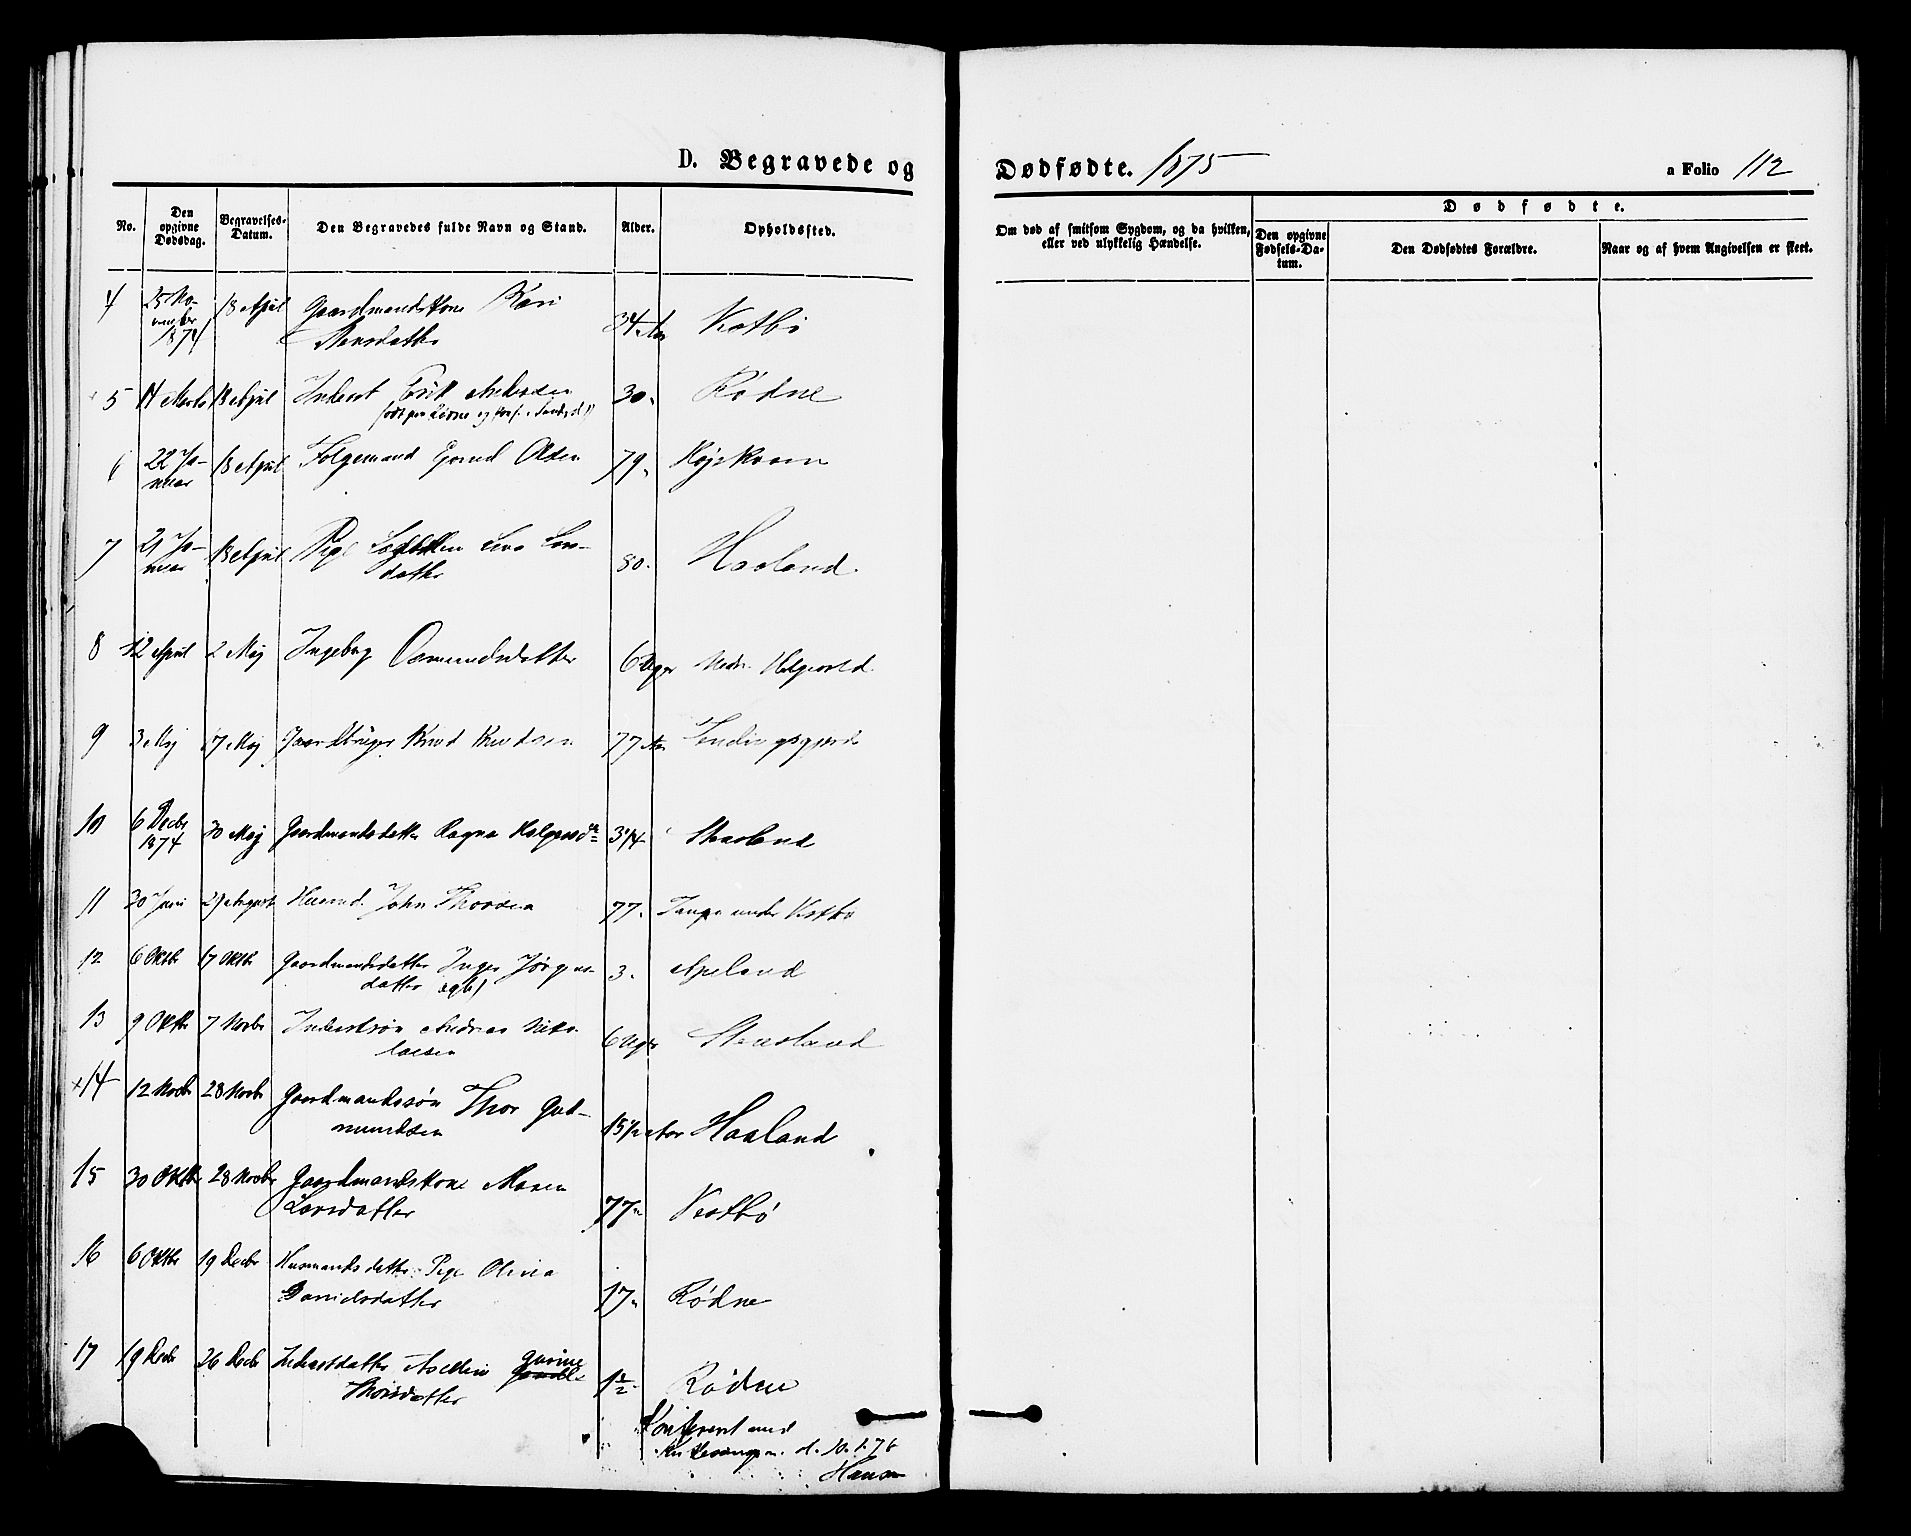 D. Begravede og
Dødfødte. 1875
a Folio 112
No.
Den opgivne Dødsdag.
Begravelses-Datum.
Den Begravedes fulde Navn og Stand.
Alder.
Opholdssted.
Om død af smitsom Sygdom, og da hvilken, eller ved ulykkelig Hændelse.
Dødfødte.
Den opgivne Fødsels-Datum.
Den Dødfødtes Forældre.
Naar og af hvem Angivelsen er skeet.
4 25 November 1874 18 April Gaardmandskone Kari
34 Aar Vestbø
5 14 Marts 18 April Inderst Erik Andersen 30 Rødne
6 22 Januar 18 April Folgemand Olsen 79
7 21 Januar 18 April Pige Lars-
datter 80 Haaland
8 12 April 2 Maj Ingeborg Osmundsdatter 6 Uger Nedr. Helgevold
9 3 Maj 17 Maj Knud Knudsen 77 Aar
10 6 Decbr 1874 30 Maj Gaardmandsdatter Ragna Helgesd. 3 1/4 Skaaland
11 30 Juni 29 August Husmd. John Thorsen 77 under Vestbø
12 6 Oktbr 17 Oktbr Gaardmandsdatter Inger Jørgens-
datter (ægte) 3 Apeland
13 9 Oktbr 7 Novbr Inderstsøn Andreas Niko-
laisen 6 Uger
14 12 Novbr 28 Novbr Gaardmandssøn Thor Gud-
mundsen 15 1/2 Aar Haaland
15 30 Oktbr 28 Novbr Gaardmandskone Maren
Larsdatter 77 Vestbø
16 6 Oktbr 19 Decbr Husmandsdatter Pige Olivia
Danielsdatter 17 Rødne
17 19 Decbr 26 Decbr Inderstdatter Gurine
Thorsdatter 1 1/2 Rødne
Konfereret med
d. 10.1.76
Hansen